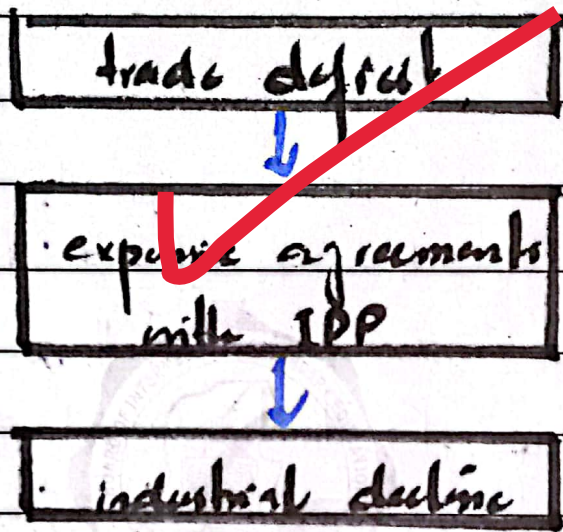 trade deficit
expensive agreements
with IPP
industrial decline